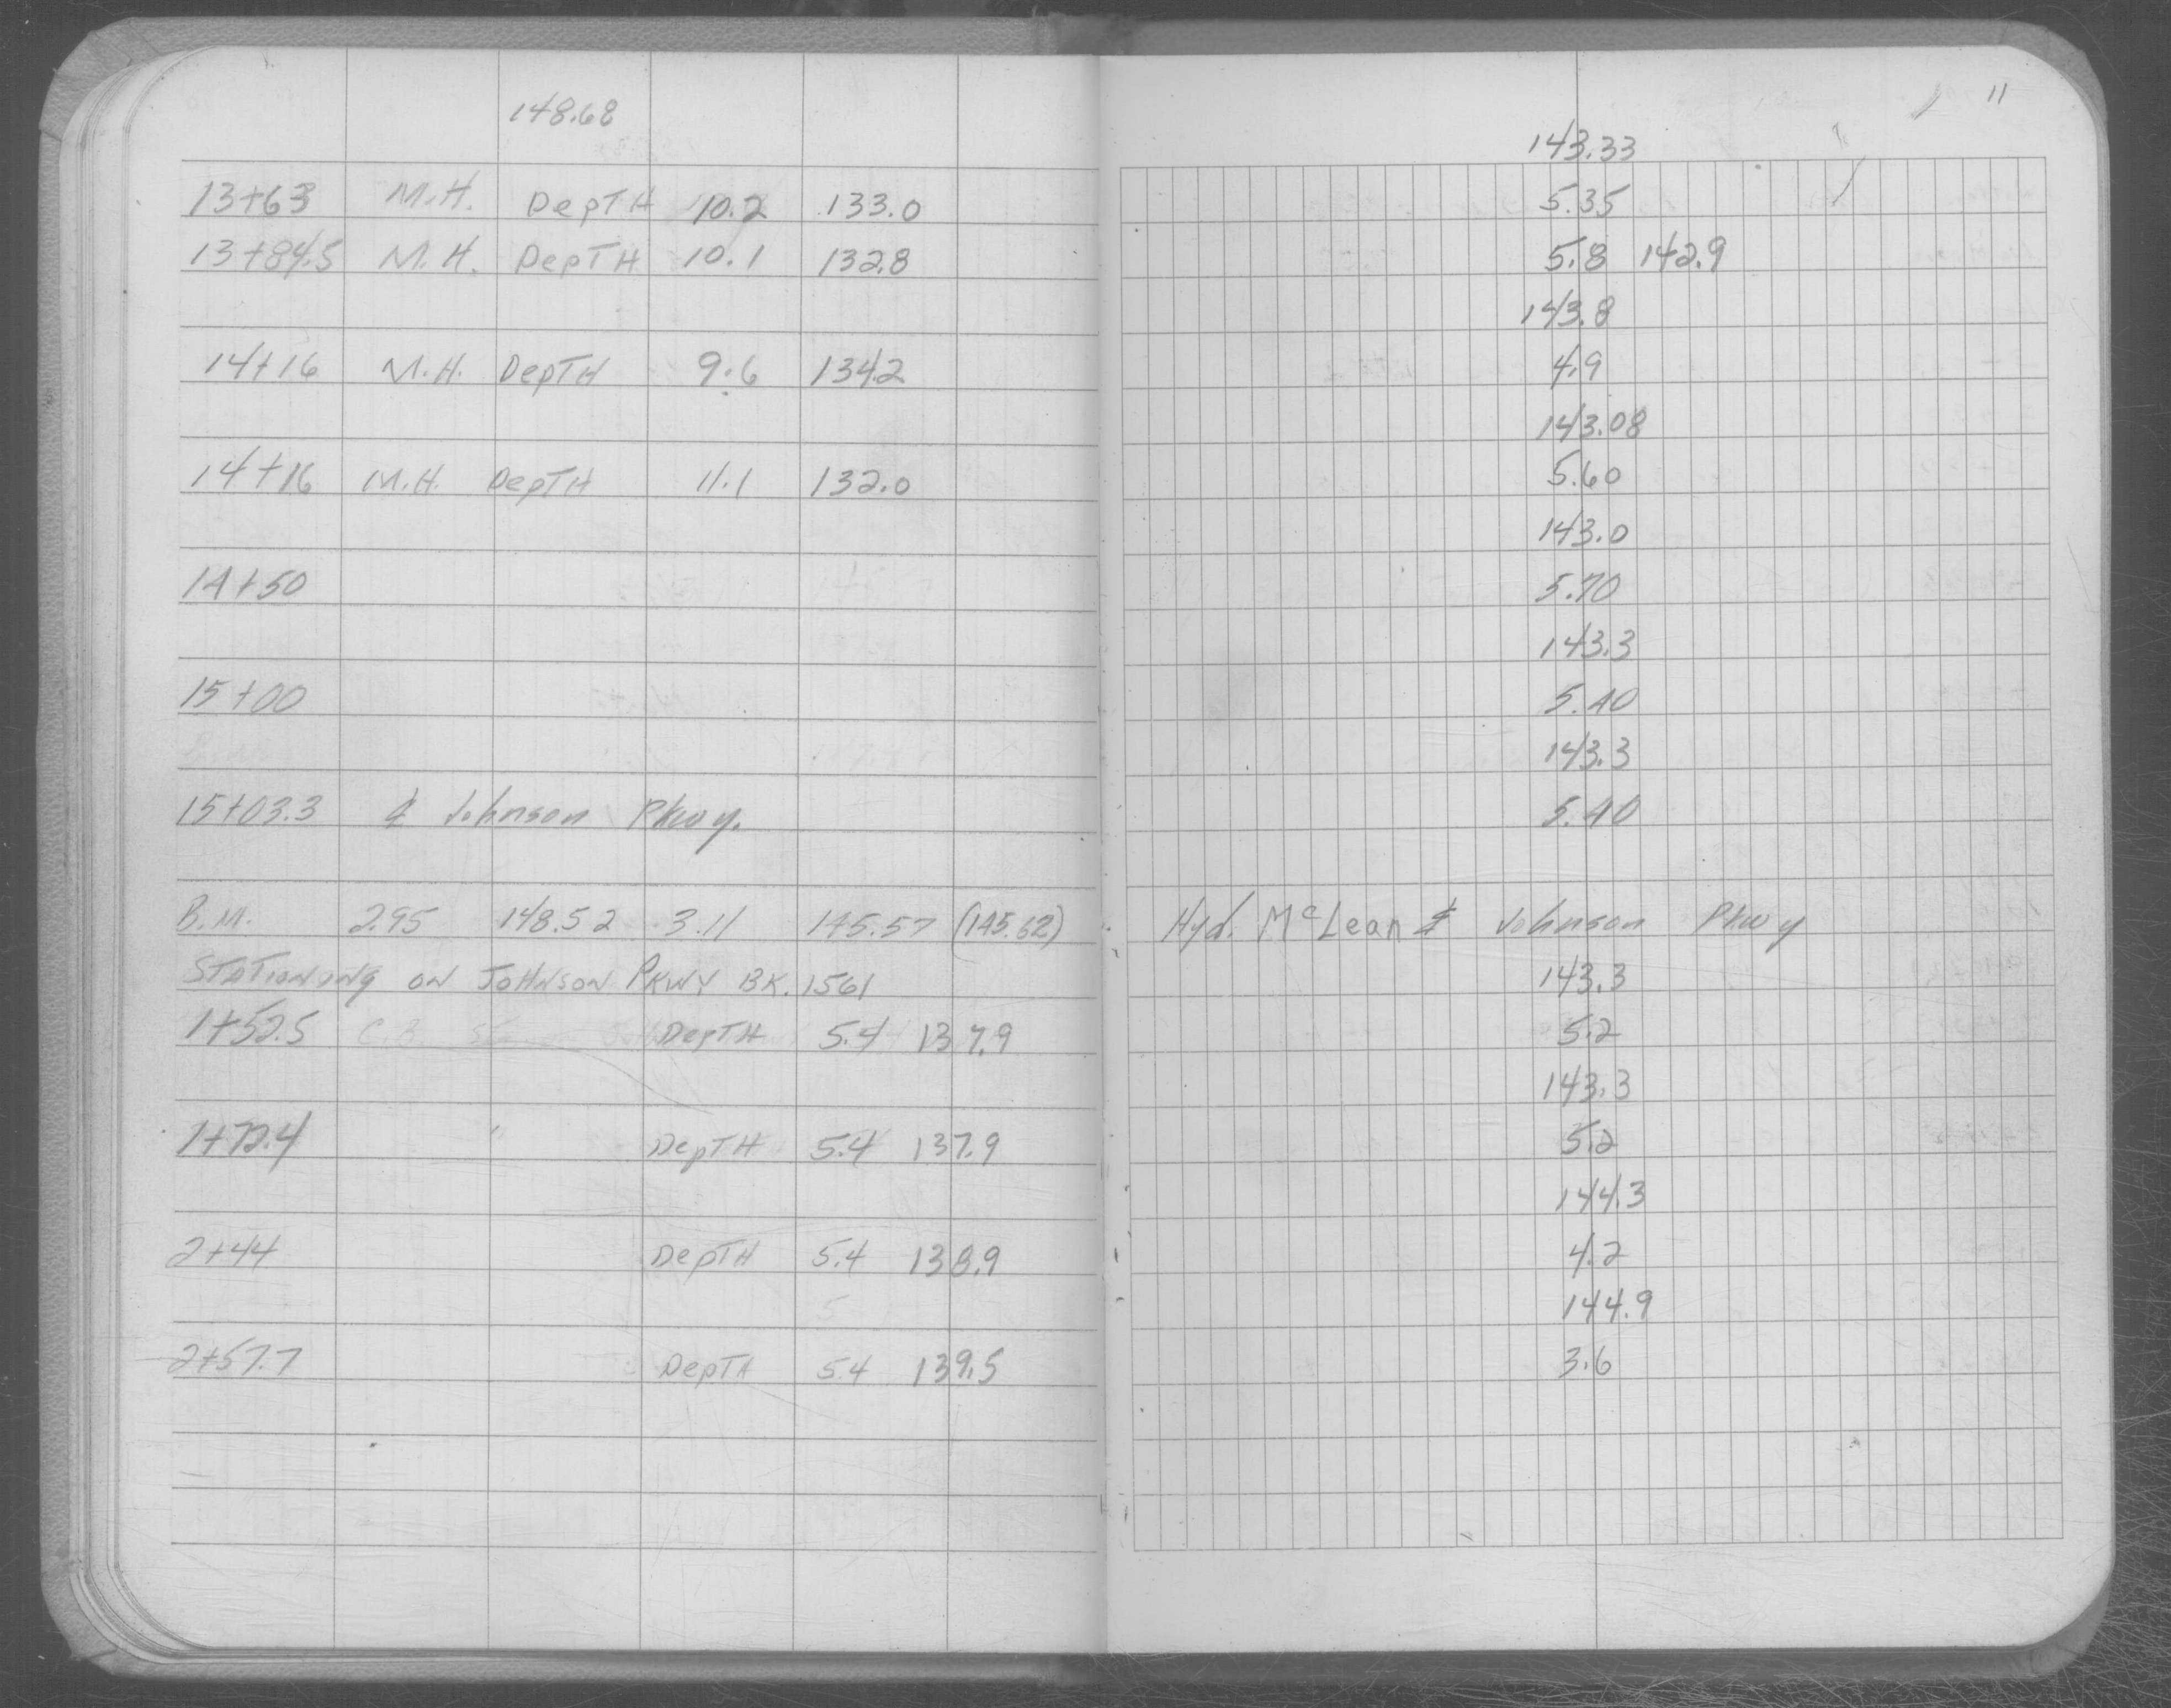 148.68
13+63 M.H. DepTH 10.2 133.0
13+84.5 M.H. DepTH 10.1 132.8
14+16 M.H. DepTH 9.6 134.2
14+16 M.H. DepTH 11.1 132.0
14+50
15+00
15+03.3 ¢ Johnson Pkwy.
B.M. 2.95 148.52 3.11 145.57 (145.62)
STATIONING ON JOHNSON PKWY BK. 1561
1+52.5 C.B. DepTH 5.4 137.9
1+72.4 " DepTH 5.4 137.9
2+44 DepTH 5.4 138.9
2+57.7 DepTH 5.4 139.5
11
143.33
5.35
5.8 142.9
143.8
4.9
143.08
5.60
143.0
5.70
143.3
5.40
143.3
5.40
Hyd. McLean & Johnson Pkwy
143.3
5.2
143.3
5.2
144.3
4.2
144.9
3.6